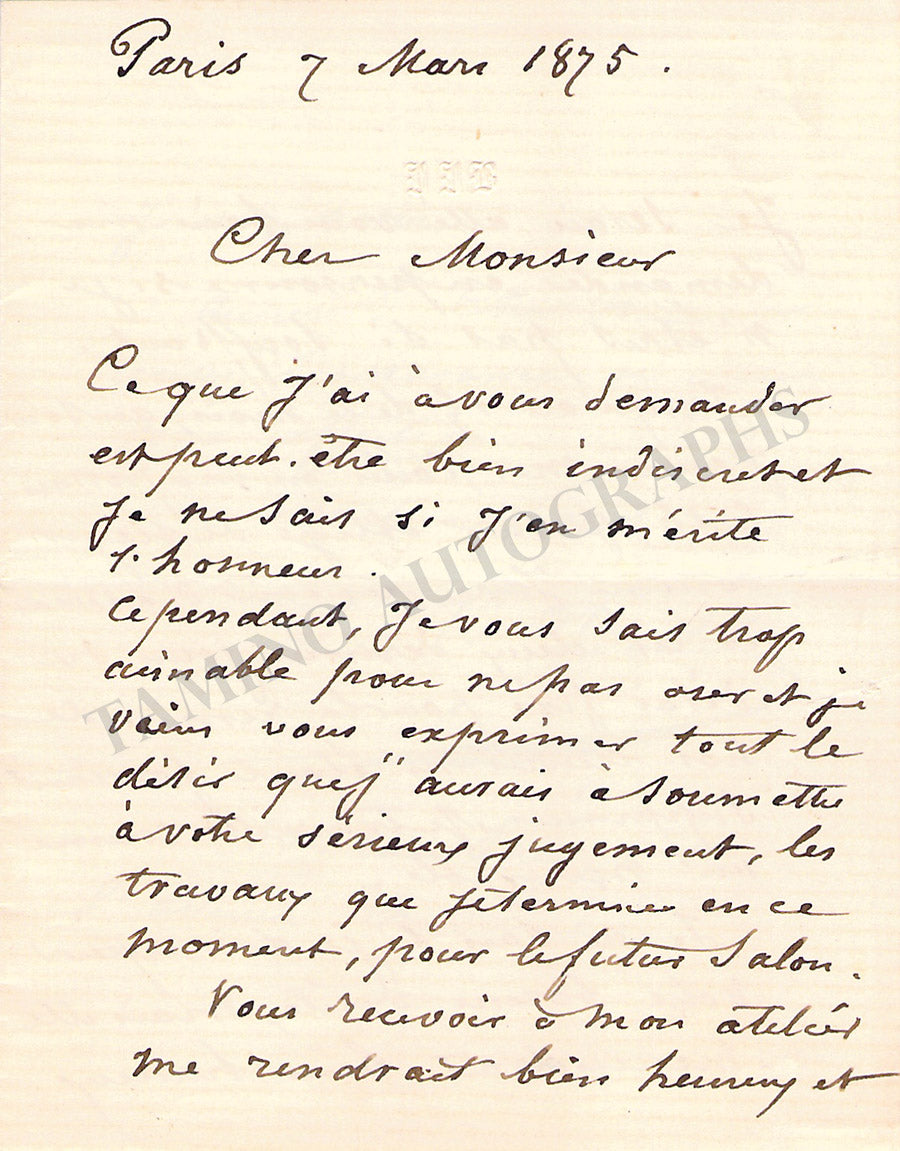 Paris 7 Mars 1875.
Cher Monsieur
Ce que j'ai à vous demander
est peut-être bien indiscret et
je ne sais si j'en mérite
l'honneur.
Cependant, je vous sais trop
aimable pour ne pas oser et je
viens vous exprimer tout le
désir que j'aurais à soumettre
à votre sérieux jugement, les
travaux que je termine en ce
moment, pour le futur Salon.
Vous recevoir à mon atelier
me rendrait bien heureux et
TAMINO AUTOGRAPHS